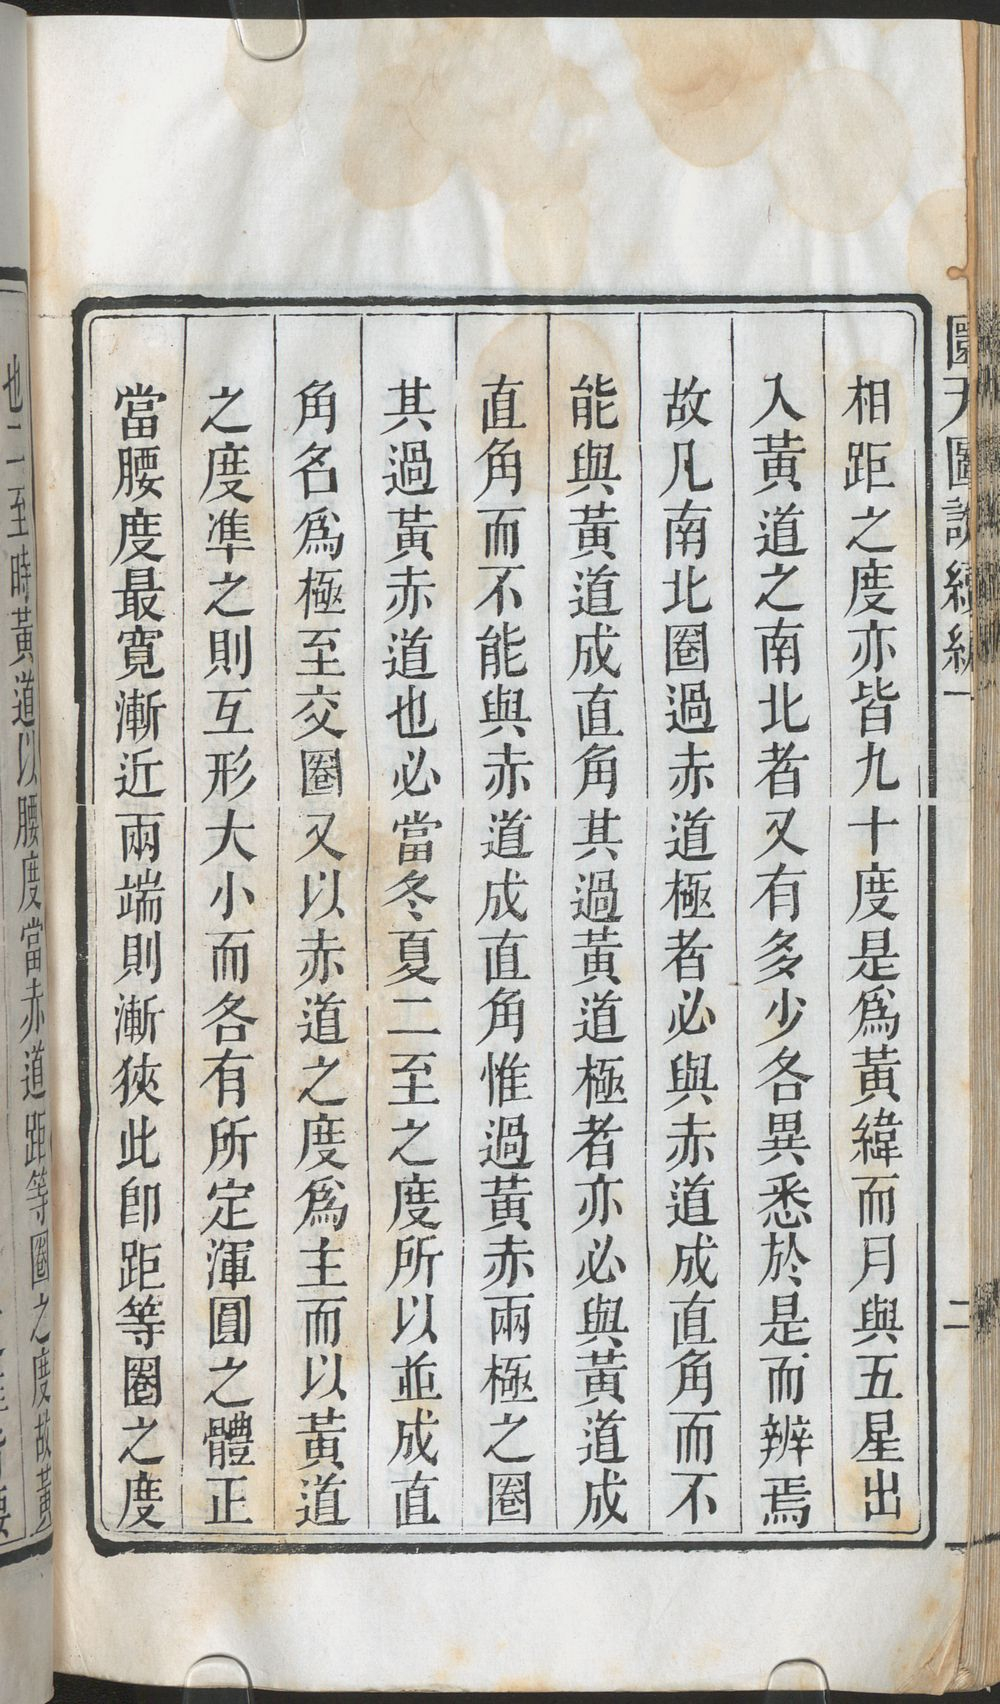 圜天圖說續編一
二
相距之度亦皆九十度是爲黃緯而月與五星出
入黃道之南北者又有多少各異悉於是而辨焉
故凡南北圈過赤道極者必與赤道成直角而不
能與黃道成直角其過黃道極者亦必與黃道成
直角而不能與赤道成直角惟過黃赤兩極之圈
其過黃赤道也必當冬夏二至之度所以並成直
角名爲極至交圈又以赤道之度爲主而以黃道
之度準之則互形大小而各有所定渾圓之體正
當腰度最寬漸近兩端則漸狹此卽距等圈之度
也二至時黃道以腰度當赤道距等圈之度故黃